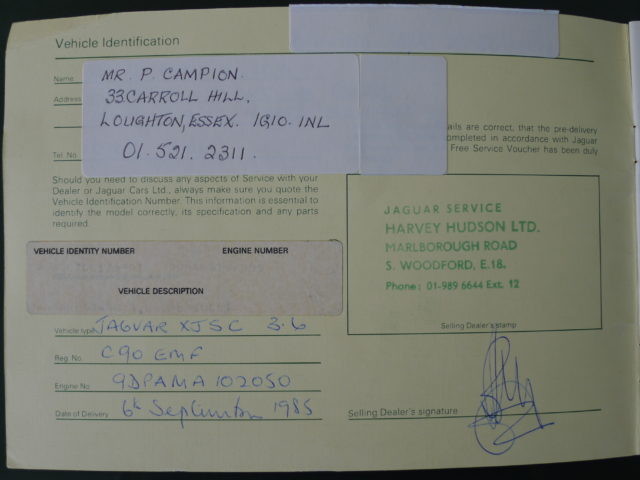 Vehicle Identification
Name
MR. P. CAMPION.
Address
33 CARROLL HILL,
LOUGHTON, ESSEX. 1G10. 1NL
Tel. No.
01. 521. 2311.
ails are correct, that the pre-delivery
ompleted in accordance with Jaguar
Free Service Voucher has been duly
Should you need to discuss any aspects of Service with your
Dealer or Jaguar Cars Ltd., always make sure you quote the
Vehicle Identification Number. This information is essential to
identify the model correctly, its specification and any parts
required.
VEHICLE IDENTITY NUMBER ENGINE NUMBER
VEHICLE DESCRIPTION
Vehicle type JAGUAR XJSC 3.6
Reg. No. C90 EMF
Engine No 9DPAMA 102050
Date of Delivery 6th September 1985
JAGUAR SERVICE
HARVEY HUDSON LTD.
MARLBOROUGH ROAD
S. WOODFORD, E.18.
Phone: 01-989 6644 Ext. 12
Selling Dealer's stamp
Selling Dealer's signature